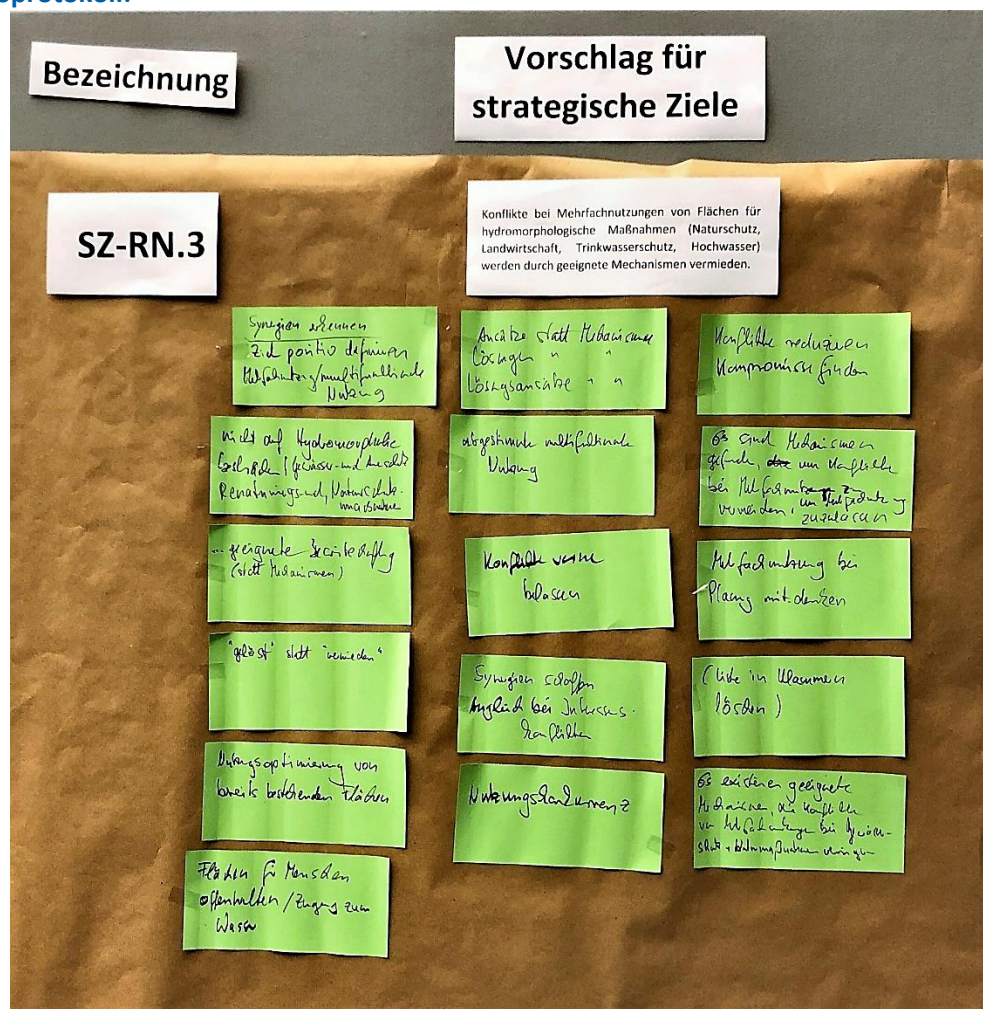 Bezeichnung
Vorschlag für
strategische Ziele
SZ-RN.3
Konflikte bei Mehrfachnutzungen von Flächen für
hydromorphologische Maßnahmen (Naturschutz,
Landwirtschaft, Trinkwasserschutz, Hochwasser)
werden durch geeignete Mechanismen vermieden.
Synergien erkennen
Ziel positiv definieren
Mehrfachnutzung/multifunktionale
Nutzung
nicht auf Hydromorphologie
Gewässer- und
Renaturierungs- und Naturschutz-
... geeignete
(statt Mechanismen)
"gelöst" statt "vermieden"
Nutzungsoptimierung von
bereits bestehenden Flächen
Flächen für Menschen
offenhalten / Zugang zum
Wasser
Ansätze statt Mechanismen
Lösungen " "
Lösungsansätze " "
abgestimmte multifunktionale
Nutzung
Konflikte
Synergien schaffen
Ausgleich bei Interessens-
konflikten
Nutzungskonkurrenz
Konflikte reduzieren
Kompromisse finden
Es sind Mechanismen
gefunden, um Konflikte
bei Mehrfachnutzung zu
vermeiden, um Mehrfachnutzung
zuzulassen
Mehrfachnutzung bei
Planung mitdenken
(Liste in Klammern
löschen)
Es existieren geeignete
Mechanismen, die Konflikte
von Mehrfachnutzungen bei Gewässer-